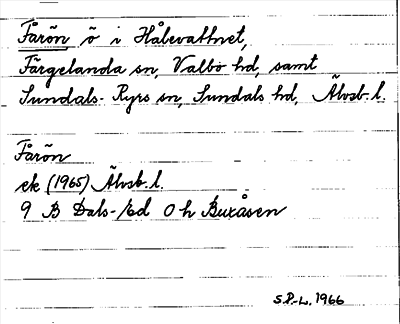 Fårön ö i Hålevattnet,
Färgelanda sn, Valbo hd, samt
Sundals-Ryrs sn, Sundals hd, Älvsb. l.
Fårön
ek (1965) Älvsb. l.
9 B Dals-Ed 0 h Buxåsen
S.P.-L. 1966